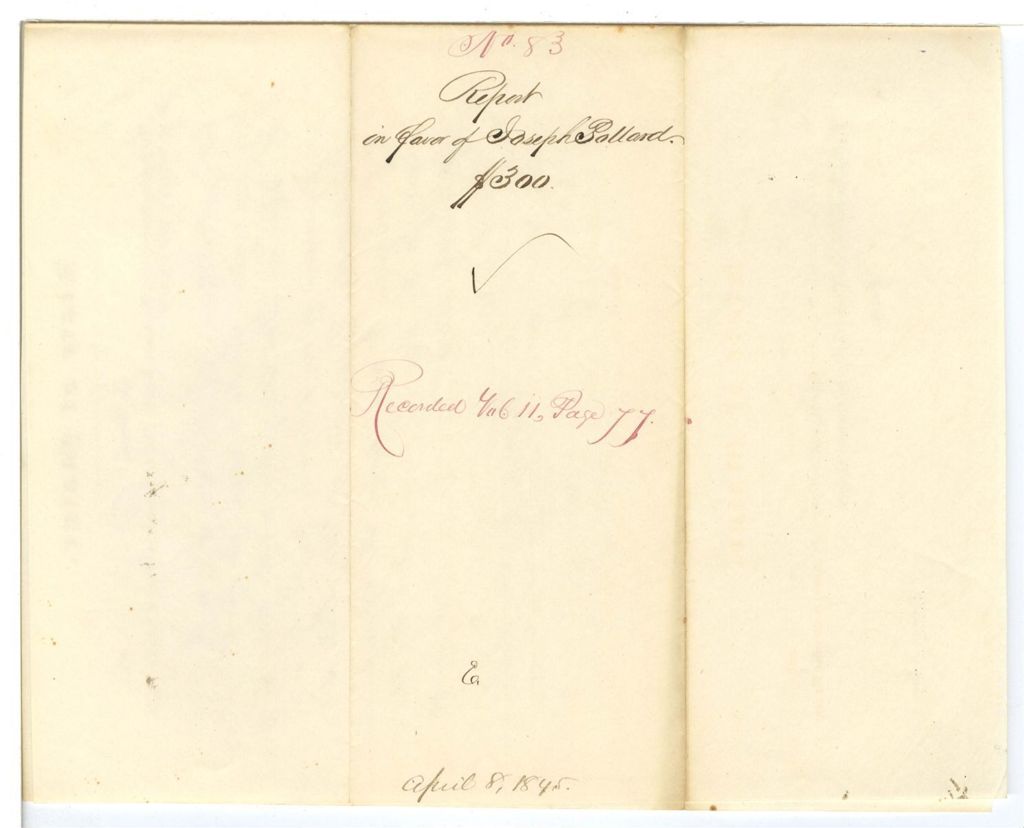 No. 83
Report
in favor of Joseph Pollard.
$300.
Recorded Vol 11, Page 77.
E
April 8, 1845.